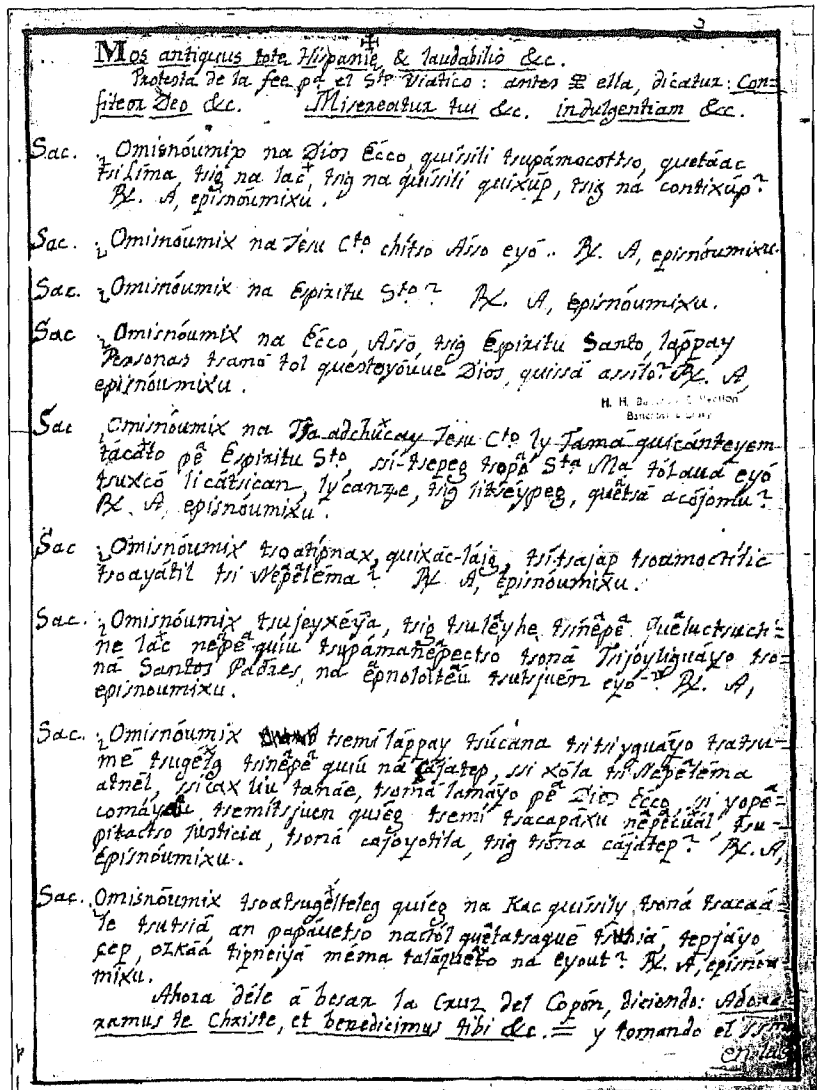 Mos antiquus tota Hispanię & laudabilis &c.
Protesta de la fee pª el Sto Viatico: antes ella, dicatur: Con=
fiteor Deo &c. Misereatur tui &c. indulgentiam &c.
Sac. ¿Omisnóumix na Dios Ecco, quíssili tsupámocottso, quetáac
tsilíma, tsig na lac, tsig na quíssili quixúp, tsig ná contixúp?
℟. A, epísnóumixu.
Sac. ¿Omisnóumix na Jesu Cto chítso Ásso eyó.. ℟. A, episnóumixu.
Sac. ¿Omisnóumix na Espiritu Sto? ℟. A, episnóumixu.
Sac ¿Omisnóumix na Ecco, Ásso, tsig Espiritu Santo, lappay
Personas tsamó tol quenteyóuue Dios, quissá assíló? ℟. A,
epísnóumixu.
Sac ¿Omisnóumix na adchucay Jesu Cto ly Jamá quicánteyem
tácáto pê Espiritu Sto, ssi-tsepeg tsopó Sta Ma tólauá eyó
tsuxcó licátsican, lycanze, tsig litséypeg, quêtsa acójomu?
℟. A, episnóumixu.
Sac ¿Omisnóumix tsoatípnax, quixác-láig, tsítsajap tsoamoctílic
tsoayátil tsi Nepêléma? ℟. A, episnóumixu.
Sac. ¿Omisnóumix tsujeyxéyâ, tsig tsuléyhe tsínêpê quêluctsuch=
ne lac nepê quíu tsupámañêpectso tsoná Tsijoyliguáyo tso=
ná Santos Padres, na êpnoloitêú tsutsjuem eyó? ℟. A,
episnoumixu.
Sac. ¿Omisnóumix tsemí láppay tsúcána tsitsiyguáyo tsatsu=
mê tsugélg tsínêpê quíu ná cájatep, ssi xóla tsi Nepêléma
atnél, ssicax líu tanáe, tsoná lamáyo pê Dios Ecco, si yopê=
tsemítsjuen quiég tsemí tsacapáxu nêpêcuál, tsu=
pitactso justicia, tsoná cajoyotila, tsig tsóna cájatep? ℟. A,
épísnóumixu.
Sac. ¿Omisnóumix tsoatsugélteleg quíeg na Kac quíssily tsoná tsacaá=
le tsutsiá, an papáuetso naciól quêtatságuê tepjáyo
cep, ozkáá tipneiyá méma na eyout? ℟. A, epísnóu
míxu.
Ahora déle á besar la Cruz del Copón, diciendo: Adora=
ramus te Christe, et benedicimus tibi &c. = y tomando el ssm
H. H. Bancroft Collection
Bancroft Library